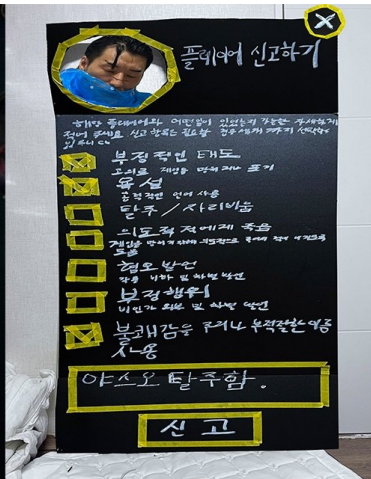 플레이어 신고하기
해당 플레이어와 어떤일이 있었는지 가능한 자세하게
적어 주세요 신고 항목은 필요할 경우 세개 까지 선택
부정적인 태도
고의로 게임을 망치거나 포기
욕설
공격적인 언어 사용
탈주 / 자리비움
의도적 적에게 죽음
도움
혐오 발언
각종 비하 및 차별 발언
부정행위
불쾌감을 주거나 부적절한 이름
사용
야스오 탈주함.
신고